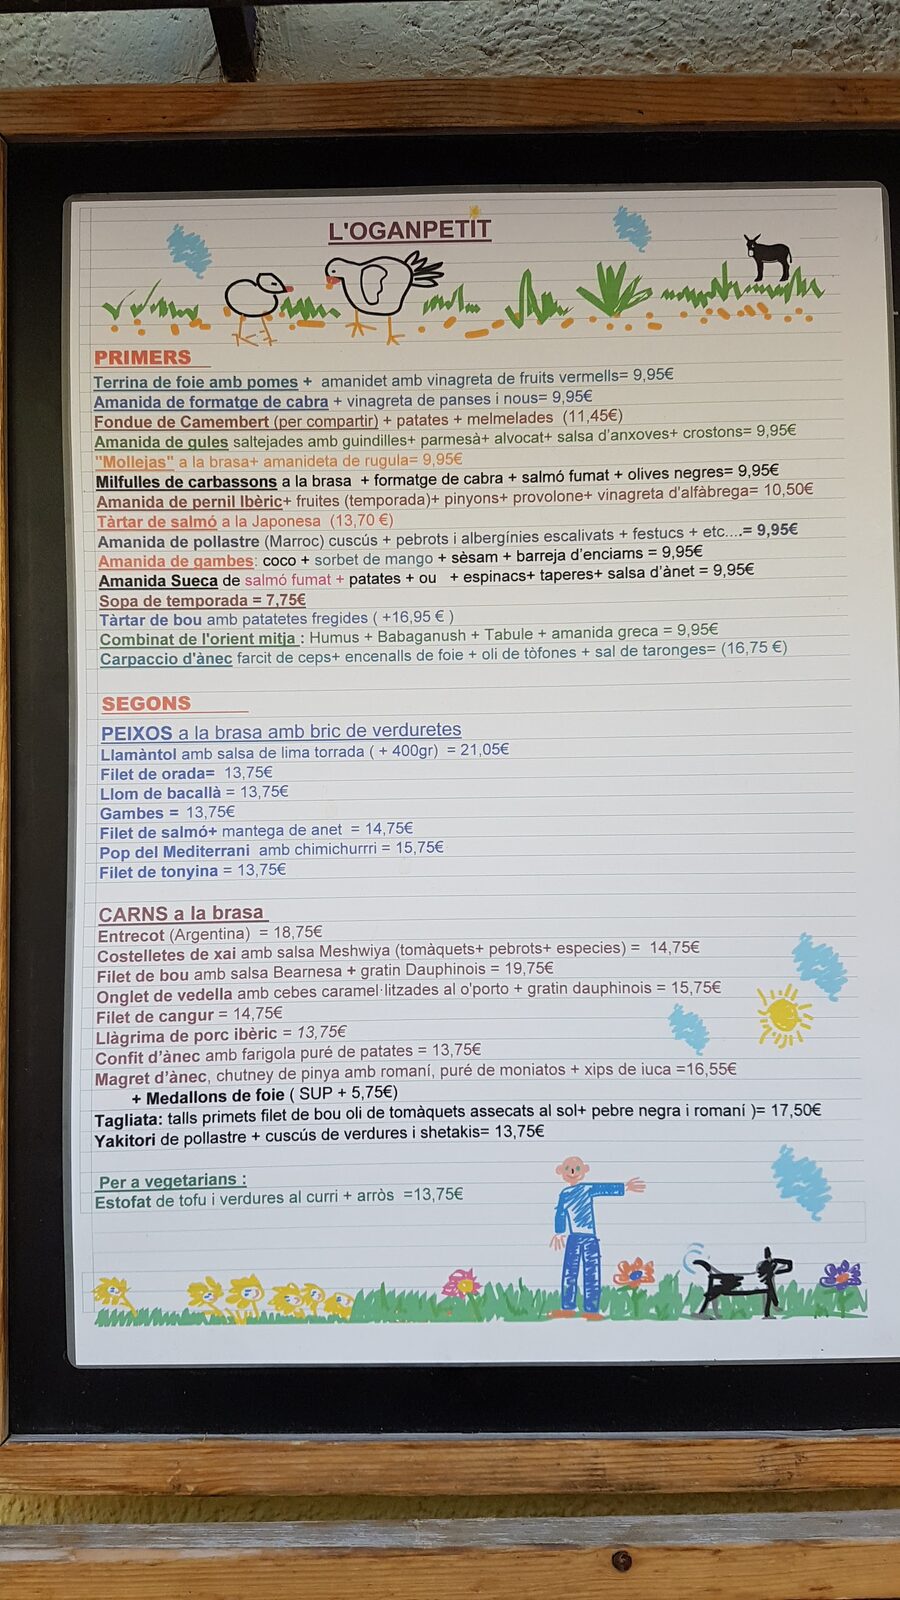 L'OGANPETIT
PRIMERS
Terrina de foie amb pomes + amanidet amb vinagreta de fruits vermells= 9,95€
Amanida de formatge de cabra + vinagreta de panses i nous= 9,95€
Fondue de Camembert (per compartir) + patates + melmelades (11,45€)
Amanida de gules saltejades amb guindilles+ parmesà+ alvocat+ salsa d'anxoves+ crostons= 9,95€
"Mollejas" a la brasa+ amanideta de rugula= 9,95€
Milfulles de carbassons a la brasa + formatge de cabra + salmó fumat + olives negres= 9,95€
Amanida de pernil Ibèric+ fruites (temporada)+ pinyons+ provolone+ vinagreta d'alfàbrega= 10,50€
Tàrtar de salmó a la Japonesa (13,70 €)
Amanida de pollastre (Marroc) cuscús + pebrots i albergínies escalivats + festucs + etc....= 9,95€
Amanida de gambes: coco + sorbet de mango + sèsam + barreja d'enciams = 9,95€
Amanida Sueca de salmó fumat + patates + ou + espinacs+ taperes+ salsa d'ànet = 9,95€
Sopa de temporada = 7,75€
Tàrtar de bou amb patatetes fregides ( +16,95 € )
Combinat de l'orient mitja : Humus + Babaganush + Tabule + amanida greca = 9,95€
Carpaccio d'ànec farcit de ceps+ encenalls de foie + oli de tòfones + sal de taronges= (16,75 €)
SEGONS
PEIXOS a la brasa amb bric de verduretes
Llamàntol amb salsa de lima torrada ( + 400gr) = 21,05€
Filet de orada= 13,75€
Llom de bacallà = 13,75€
Gambes = 13,75€
Filet de salmó+ mantega de anet = 14,75€
Pop del Mediterrani amb chimichurrri = 15,75€
Filet de tonyina = 13,75€
CARNS a la brasa
Entrecot (Argentina) = 18,75€
Costelletes de xai amb salsa Meshwiya (tomàquets+ pebrots+ especies) = 14,75€
Filet de bou amb salsa Bearnesa + gratin Dauphinois = 19,75€
Onglet de vedella amb cebes caramel·litzades al o'porto + gratin dauphinois = 15,75€
Filet de cangur = 14,75€
Llàgrima de porc ibèric = 13,75€
Confit d'ànec amb farigola puré de patates = 13,75€
Magret d'ànec, chutney de pinya amb romaní, puré de moniatos + xips de iuca =16,55€
+ Medallons de foie ( SUP + 5,75€)
Tagliata: talls primets filet de bou oli de tomàquets assecats al sol+ pebre negra i romaní )= 17,50€
Yakitori de pollastre + cuscús de verdures i shetakis= 13,75€
Per a vegetarians :
Estofat de tofu i verdures al curri + arròs =13,75€